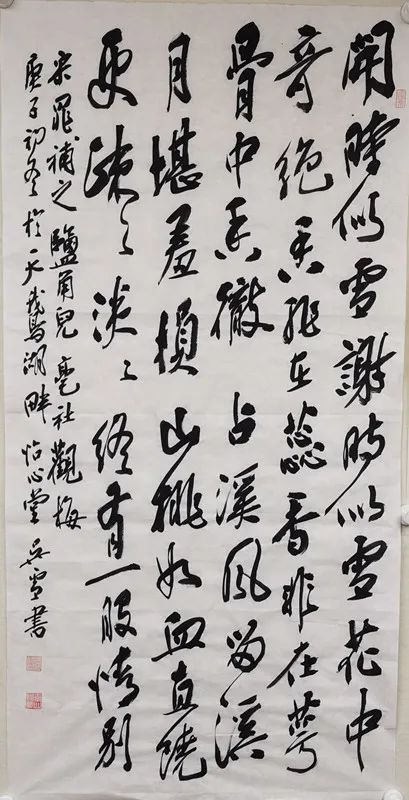 開時似雪謝時似雪花中
奇絕香非在蕊香非在萼
骨中香徹占溪風留溪
月堪羞損山桃如血直饒
更疎々淡々終有一般情別
宋晁補之鹽角兒亳社觀梅
庚子初冬於天鵝湖畔怡心堂吳雪書